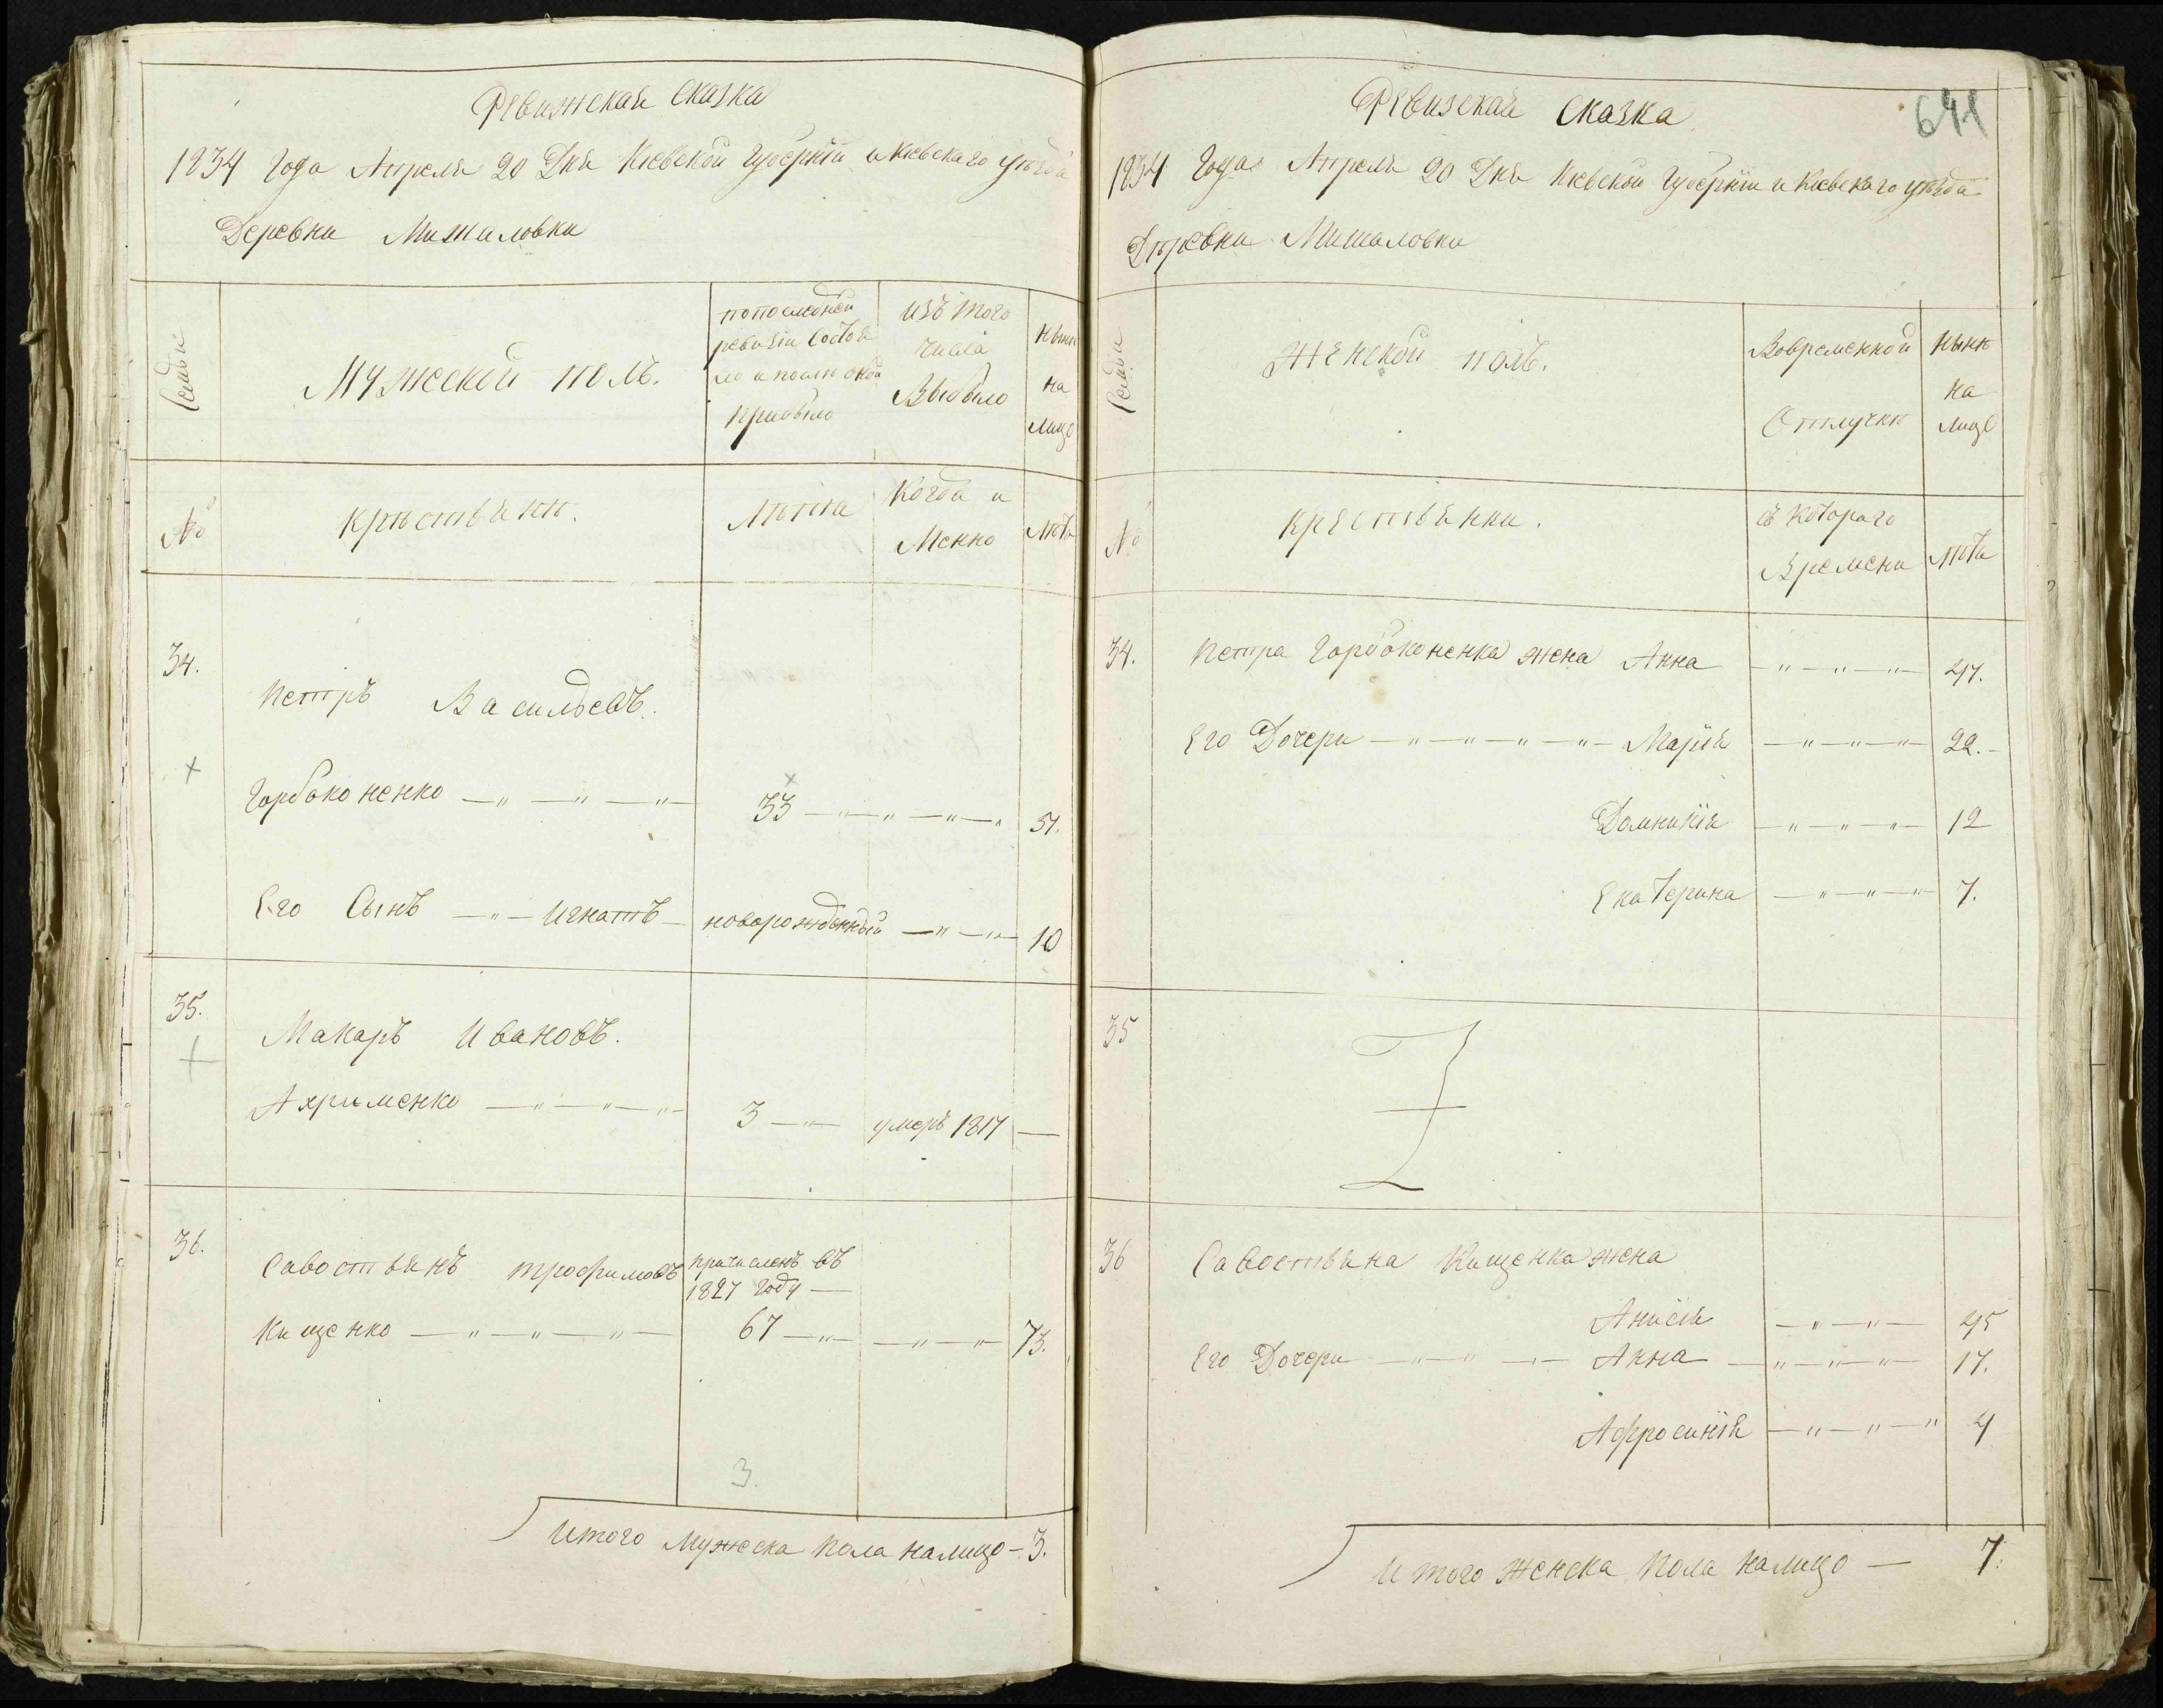 Ревижская Сказка
1834 Года Апреля 20 Дня Кіевской Губерніи и Кіевскаго уѣзда
Деревни Мишаловки
Семьи
Мужеской полъ.
попоследней
ревизіи Состоя
ло и после оной
прибыло
изъ того
числа
Выбыло
нынѣ
на
лицо
№
Крѣстьянѣ.
Лѣта
Когда и
Менно
Лѣта
34.
Петръ Васильевъ.
Горбоконенко 33 51.
Его Сынъ Игнатъ новорожденный 10
35.
Макаръ Ивановъ.
Ахрименко 3 умеръ 1817 —
36.
Савостьянъ Трофимовъ
причисленъ въ
1827 Году —
Кищенко 67 73.
3.
Итого Мужеска Пола налицо - 3.
641
Ревизская Сказка
1834 Года Апреля 20 Дня Кіевской Губерніи и Кіевскаго уѣзда
Дѣревни Мишаловки
Семьи
Женской полъ.
Вовременной
Отлучкѣ
нынѣ
на
лицо
№
Крестьянки.
съ Котораго
Времени
Лѣта
34. Петра Горбоконенка жена Анна 47.
Его Дочери Марія 22.
Домникія 12
Екатерина 7.
35
36 Савостьяна Кищенка жена
Анисія 45
Его Дочери Анна 17.
Афросинія 4
Итого Женска Пола налицо — 7.